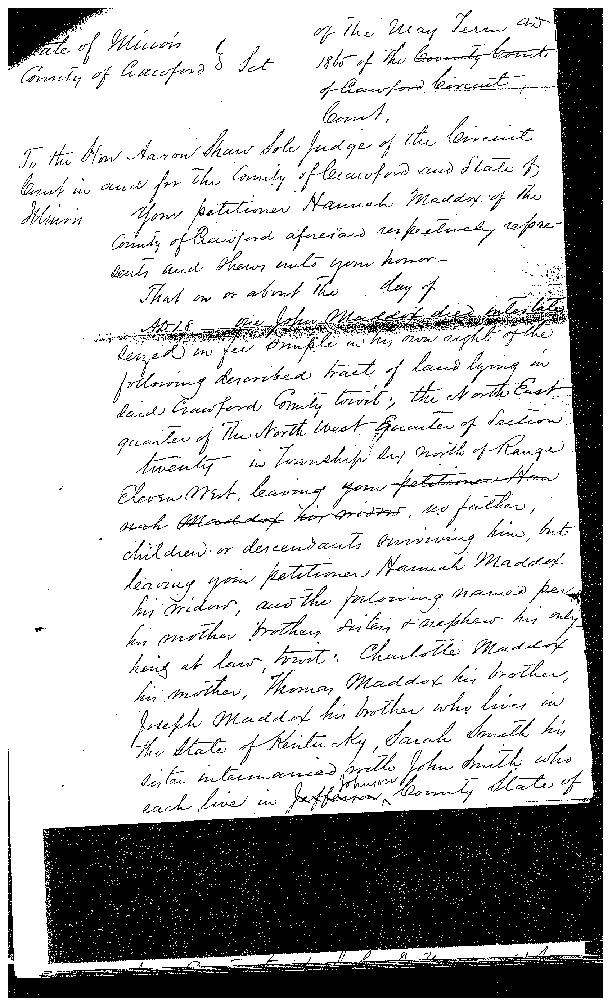 State of Illinois
County of Crawford } Sct
of the May Term AD
1865 of the County Courts
of Crawford Circuit
Court.
To the Hon Aaron Shaw Sole Judge of the Circuit
Court in and for the County of Crawford and State of
Illinois
Your petitioner Hannah Maddox of the
County of Crawford aforesaid respectively repre-
sents and shews unto your honor—
That on or about the day of
AD 18 one John Maddox died intestate
seized in fee simple in his own right of the
following described tract of land lying in
said Crawford County towit; the North East
quarter of the North West Quarter of Section
twenty in Township six north of Range
Eleven West, leaving your petitioner Han
nah Maddox his widow, no father,
children or descendants surviving him, but
leaving your petitioner Hannah Maddox
his widow, and the following named per
his mother brothers sisters & nephew his only
heirs at law, towit: Charlotte Maddox
his mother, Thomas Maddox his brother,
Joseph Maddox his brother who lives in
the State of Kentucky, Sarah Smith his
sister intermarried with John Smith who
Johnson
each live in Jefferson County State of